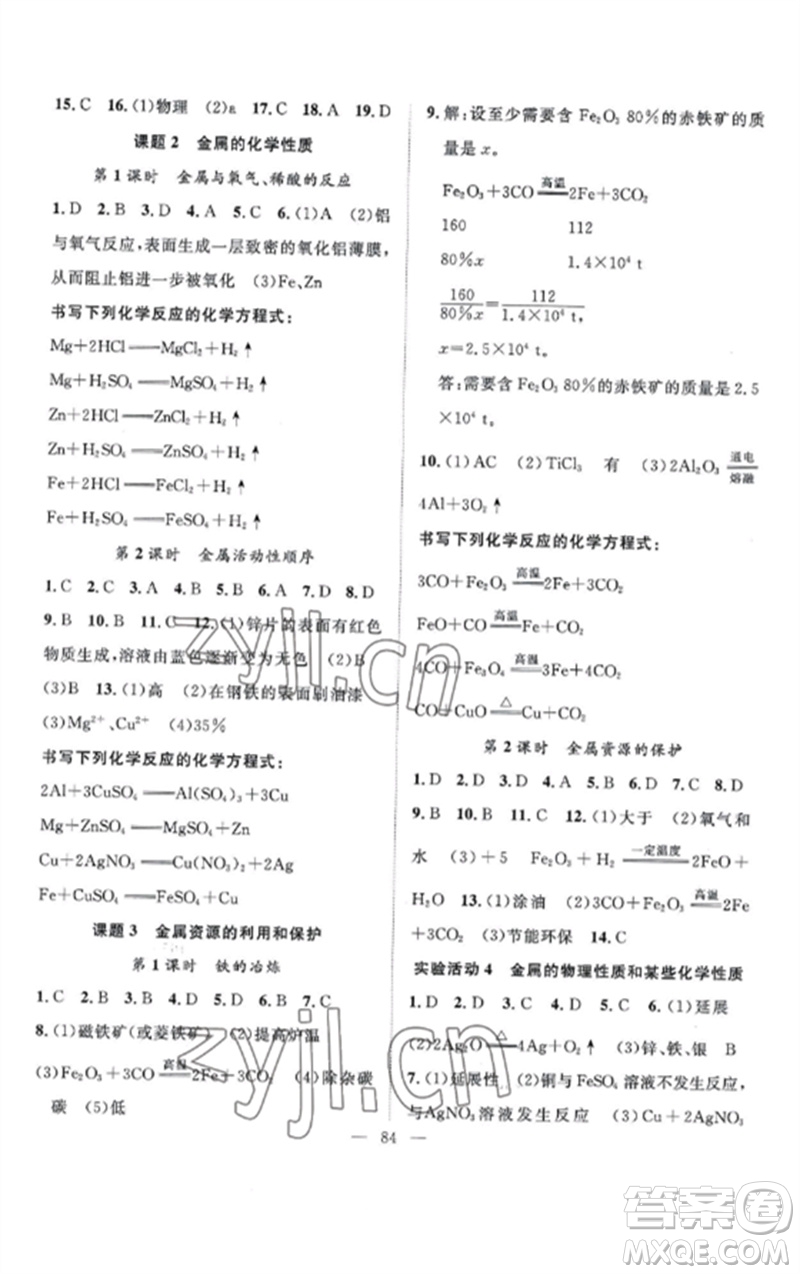 15. C 16. (1)物理 (2)g 17. C 18. A 19. D
课题 2 金属的化学性质
第 1 课时 金属与氧气、稀酸的反应
1. D 2. B 3. D 4. A 5. C 6. (1)A (2)铝
与氧气反应,表面生成一层致密的氧化铝薄膜,
从而阻止铝进一步被氧化 (3)Fe、Zn
书写下列化学反应的化学方程式:
Mg+2HCl══MgCl₂+H₂↑
Mg+H₂SO₄══MgSO₄+H₂↑
Zn+2HCl══ZnCl₂+H₂↑
Zn+H₂SO₄══ZnSO₄+H₂↑
Fe+2HCl══FeCl₂+H₂↑
Fe+H₂SO₄══FeSO₄+H₂↑
第 2 课时 金属活动性顺序
1. C 2. C 3. A 4. B 5. B 6. D 7. D 8. D
9. B 10. B 11. C 12. (1)锌片的表面有红色
物质生成,溶液由蓝色逐渐变为无色 (2)B
(3)B 13. (1)高 (2)在钢铁的表面刷油漆
(3)Mg²⁺、Cu²⁺ (4)35%
书写下列化学反应的化学方程式:
2Al+3CuSO₄══Al(SO₄)₃+3Cu
Mg+ZnSO₄══MgSO₄+Zn
Cu+2AgNO₃══Cu(NO₃)₂+2Ag
Fe+CuSO₄══FeSO₄+Cu
课题 3 金属资源的利用和保护
第 1 课时 铁的冶炼
1. C 2. D 3. A 4. D 5. B 6. B 7. C
8. (1)磁铁矿(或菱铁矿) (2)提高炉温
(3)Fe₂O₃+3CO 高温══ 2Fe+3CO₂ (4)除杂碳
碳 (5)低
9. 解:设至少需要含 Fe₂O₃ 80%的赤铁矿的质
量是 x。
Fe₂O₃+3CO 高温══ 2Fe+3CO₂
160 112
80%x 1.4×10⁴ t
160/80%x=112/1.4×10⁴ t,
x=2.5×10⁴ t。
答:需要含 Fe₂O₃ 80%的赤铁矿的质量是 2.5
×10⁴ t。
10. (1)AC (2)TiCl₃ 有 (3)2Al₂O₃ 通电══熔融
4Al+3O₂↑
书写下列化学反应的化学方程式:
3CO+Fe₂O₃ 高温══ 2Fe+3CO₂
FeO+CO 高温══ Fe+CO₂
4CO+Fe₃O₄ 高温══ 3Fe+4CO₂
CO+CuO △══ Cu+CO₂
第 2 课时 金属资源的保护
1. D 2. D 3. C 4. D 5. B 6. D 7. C 8. D
9. B 10. B 11. C 12. (1)大于 (2)氧气和
水 (3)+5 Fe₂O₃+H₂ 一定温度══ 2FeO+
H₂O 13. (1)涂油 (2)Fe₂O₃+3CO 高温══ 2Fe
+3CO₂ (3)节能环保 14. C
实验活动 4 金属的物理性质和某些化学性质
1. D 2. D 3. A 4. C 5. B 6. (1)延展
(2)2Ag₂O △══ 4Ag+O₂↑ (3)锌、铁、银 B
7. (1)延展性 (2)铜与 FeSO₄ 溶液不发生反应,
与AgNO₃ 溶液发生反应 (3)Cu+2AgNO₃
— 84 —
zyjl.cn
zyjl.cn
答案卷
MXQE.COM